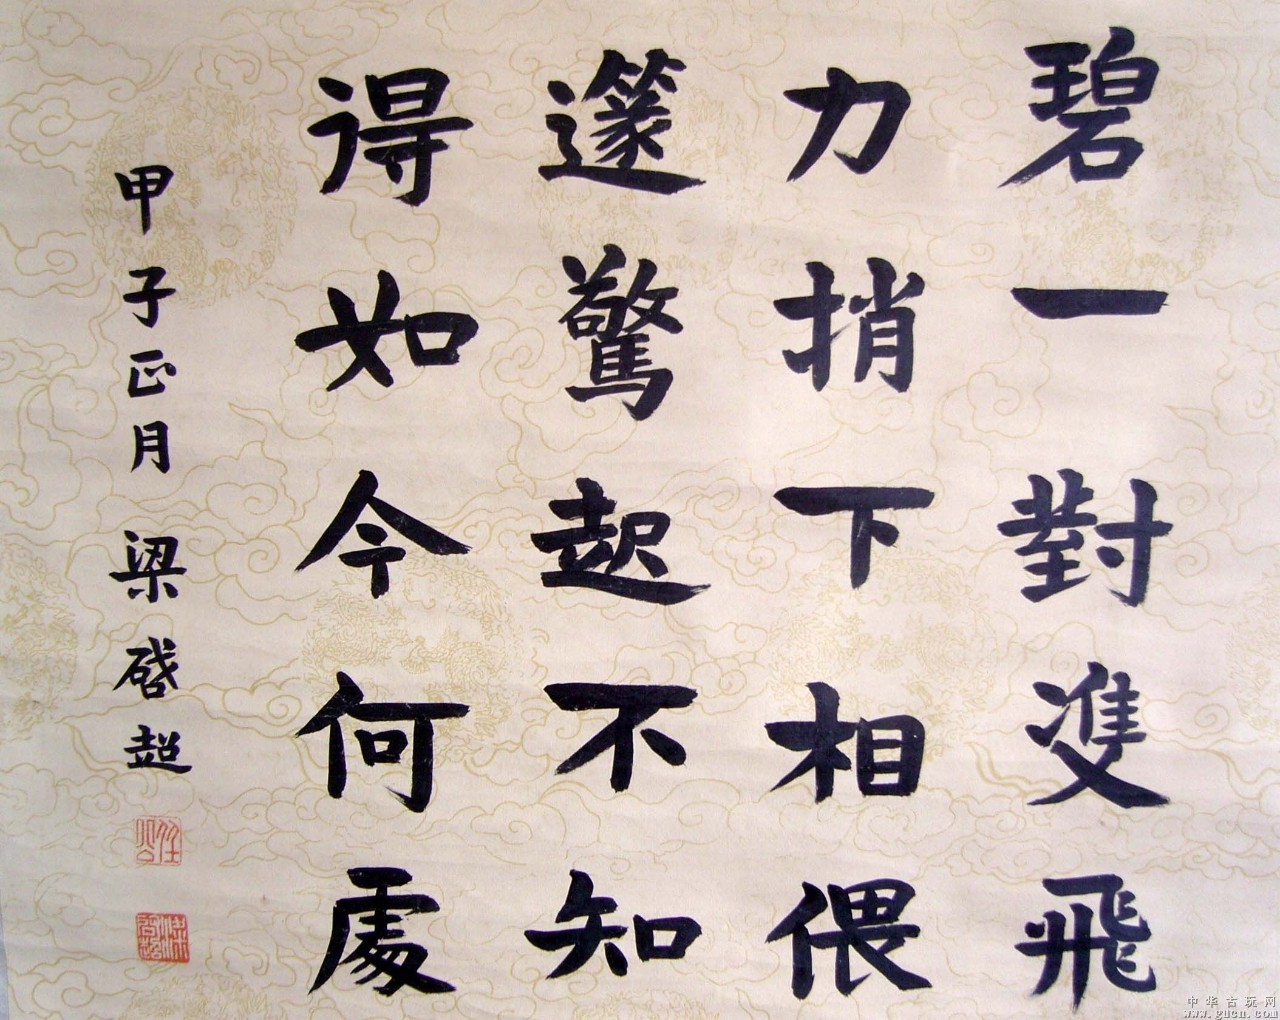 碧一對雙飛
力捎下相偎
籧驚起不知
得如今何處
甲子正月梁啓超
中华古玩网
www.gucn.com